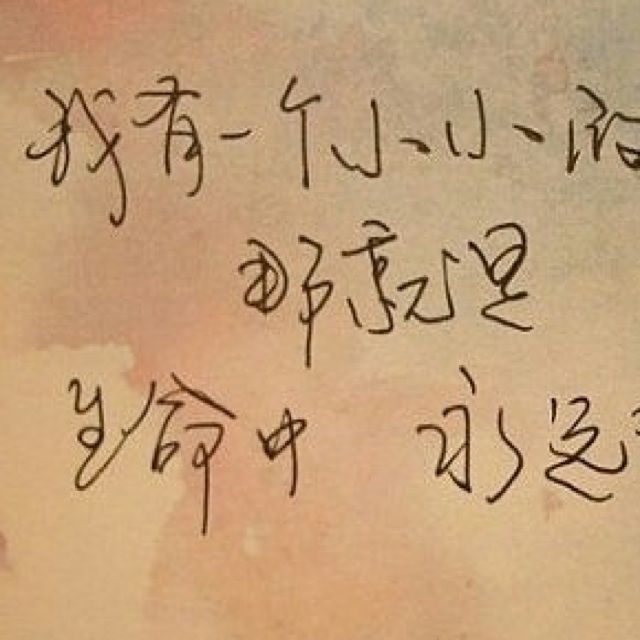 我有一个小小
那就是
生命中 永远